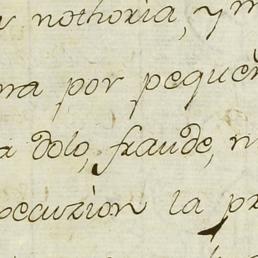 nothoria, y m
ra por pequeñ
a dolo, fraude, n
ocuzion la pr